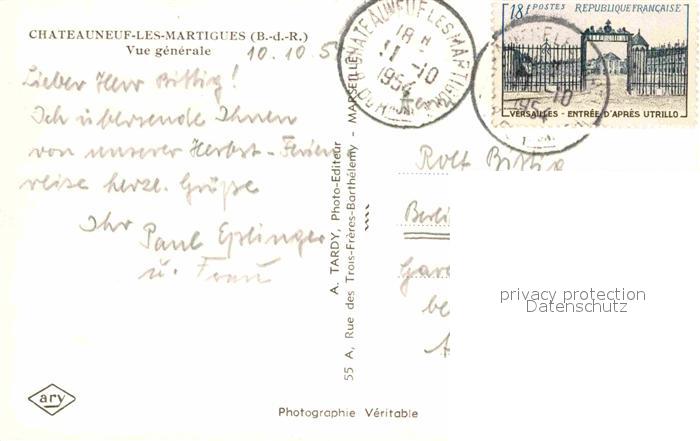 CHATEAUNEUF-LES-MARTIGUES (B.-d.-R.)
Vue générale
10.10.5
Lieber Herr Bittig!
Ich übersende Ihnen
von unserer Herbst-Ferien
reise herzl. Grüße
Ihr Paul
u. Frau
A. TARDY, Photo-Editeur
55 A, Rue des Trois-Frères-Barthélemy - MARSEILLE
CHATEAUNEUF-LES-MARTIGUES
18 H
11-10
1954
18f POSTES REPUBLIQUE FRANÇAISE
VERSAILLES - ENTRÉE D'APRÈS UTRILLO
-10
1954
Rolf Bittig
Berli
privacy protection
Datenschutz
ary
Photographie Véritable